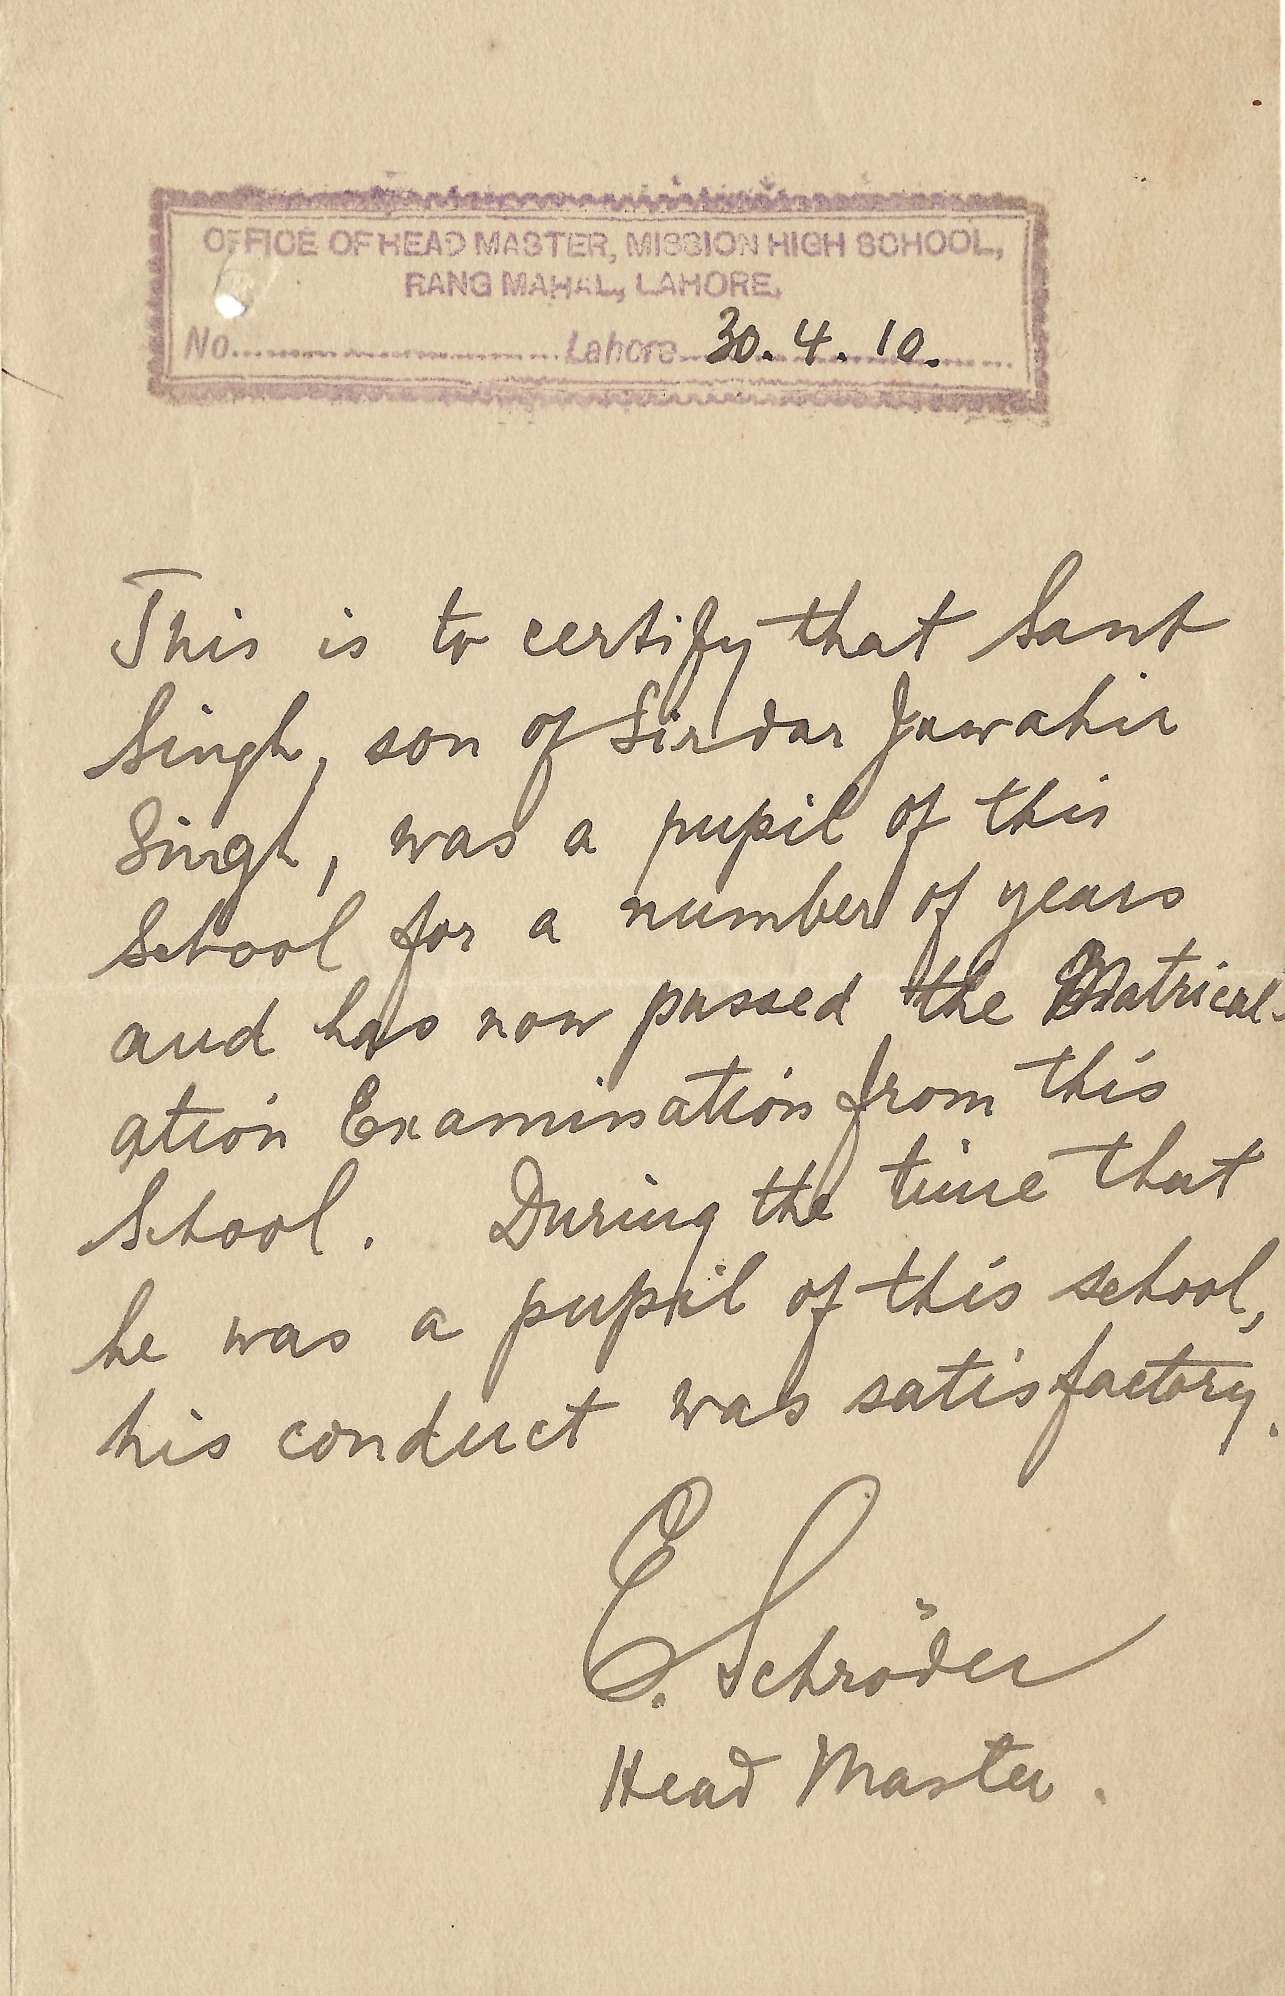 OFFICE OF HEAD MASTER, MISSION HIGH SCHOOL,
RANG MAHAL, LAHORE,
No.................... Lahore 30.4.10.
This is to certify that Sant
Singh, son of Sirdar Jawahir
Singh, was a pupil of this
School for a number of years
and has now passed the Matricul-
ation Examination from this
School. During the time that
he was a pupil of this school,
his conduct was satisfactory.
E. Schröder
Head Master.